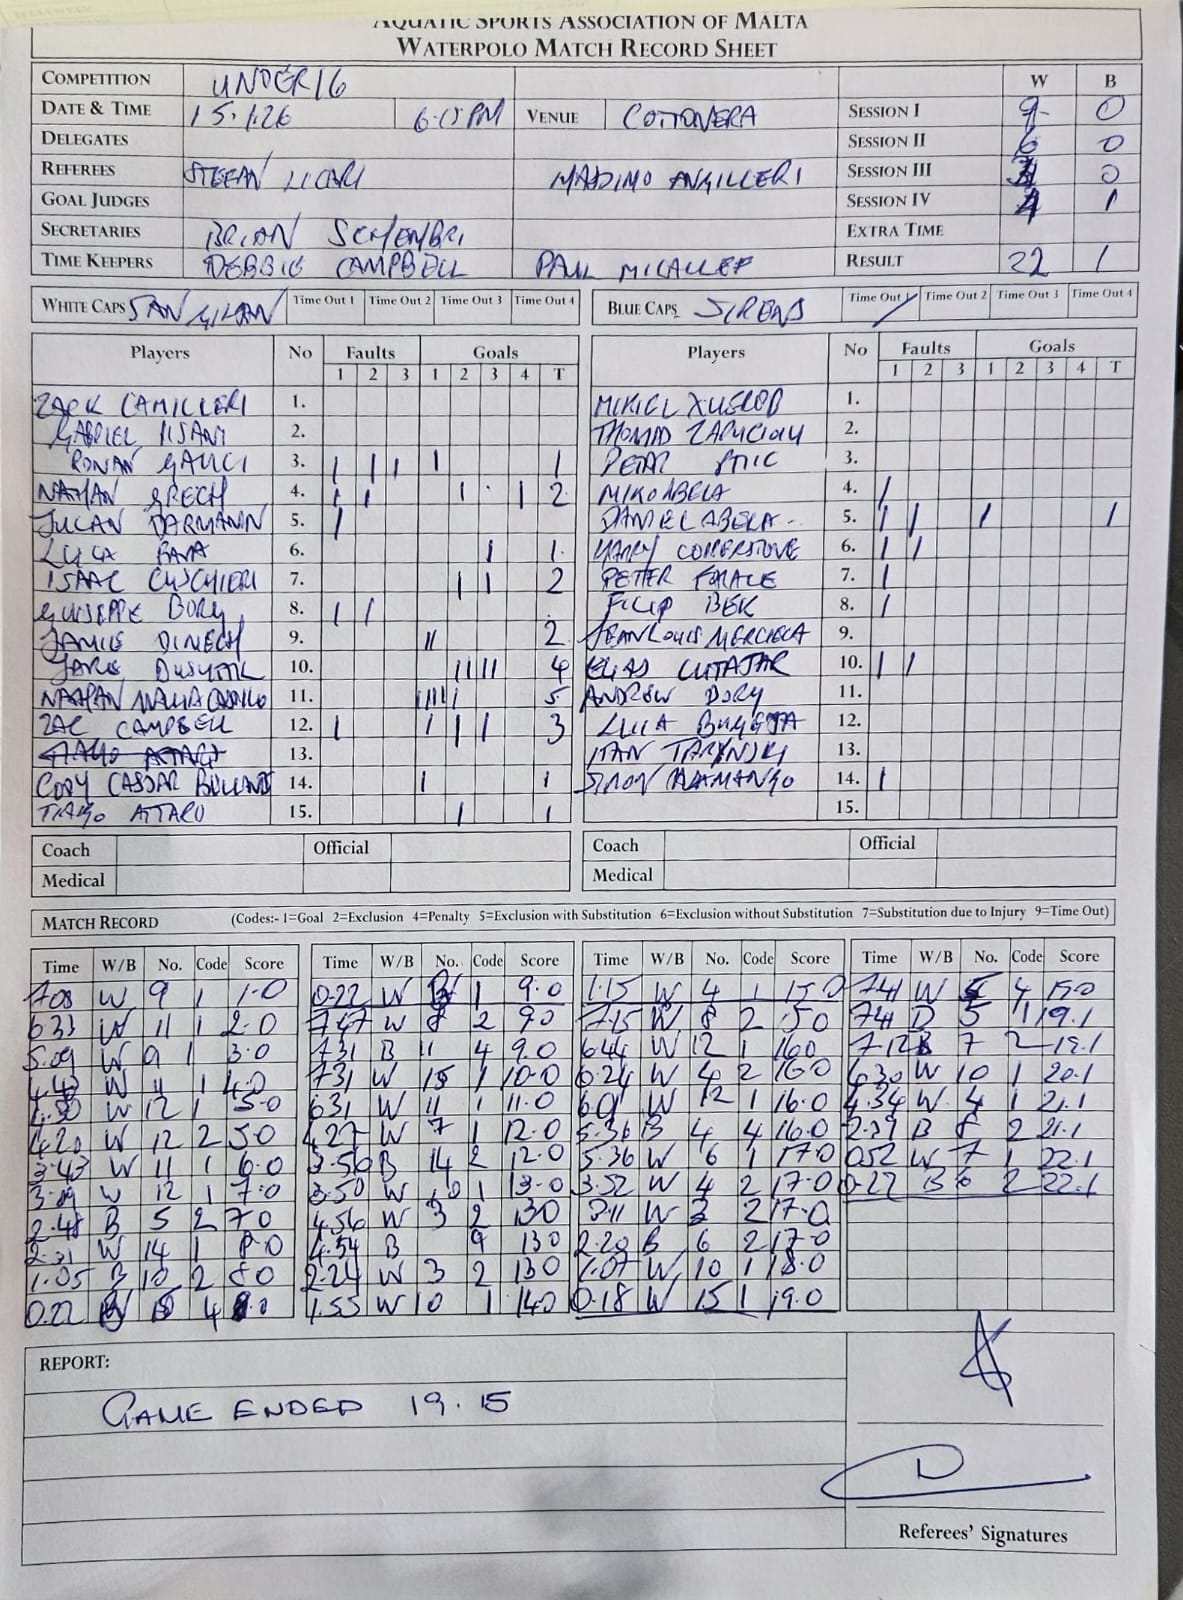 AQUATIC SPORTS ASSOCIATION OF MALTA
WATERPOLO MATCH RECORD SHEET
COMPETITION UNDER 16 W B
DATE & TIME 15.1.26 6.15PM VENUE COTTONERA SESSION I 9 0
DELEGATES SESSION II 6 0
REFEREES STEFAN LICARI MASSIMO ANGILLERI SESSION III 0
GOAL JUDGES SESSION IV 1
SECRETARIES BRIAN SCHEMBRI EXTRA TIME
TIME KEEPERS DEBBIE CAMPBELL PAUL MICALLEF RESULT 22 1
WHITE CAPS SAN GILJAN Time Out 1 Time Out 2 Time Out 3 Time Out 4 BLUE CAPS SIRENS Time Out 1 / Time Out 2 Time Out 3 Time Out 4
Players No Faults Goals Players No Faults Goals
1 2 3 1 2 3 4 T 1 2 3 1 2 3 4 T
ZACK CAMILLERI 1. MIKIEL XUEREB 1.
GABRIEL PISANI 2. THOMAS 2.
RONAN GAUCI 3. | | | | 1 PETAR 3.
NATHAN GRECH 4. | | | | 2 MIKO ABELA 4. |
JULIAN DARMANIN 5. | DANIEL ABELA 5. | | | 1
LUCA 6. | 1 HARRY CORNERSTONE 6. | |
ISAAC CUSCHIERI 7. | | 2 PETER 7. |
GUISEPPE BORG 8. | | FILIP BEK 8. |
JAMIE DINECH 9. || 2 JEANLOUIS MERCIECA 9.
JAKE 10. |||| 4 ELIAS CUTAJAR 10. | |
NATHAN 11. ||||| 5 ANDREW BORG 11.
ZAC CAMPBELL 12. | | | | 3 LUCA 12.
13. 13.
CODY CASSAR 14. | 1 SIMON 14. |
TIAGO ATTARD 15. | 1 15.
Coach Official Coach Official
Medical Medical
MATCH RECORD (Codes:- 1=Goal 2=Exclusion 4=Penalty 5=Exclusion with Substitution 6=Exclusion without Substitution 7=Substitution due to Injury 9=Time Out)
Time W/B No. Code Score Time W/B No. Code Score Time W/B No. Code Score Time W/B No. Code Score
7.08 W 9 1 1.0 0.22 W 1 9.0 1.15 W 4 1 15.0 7.41 W 4 19.0
6.33 W 11 1 2.0 7.47 W 8 2 9.0 7.15 W 8 2 15.0 7.41 B 5 1 19.1
5.09 W 9 1 3.0 7.31 B 11 4 9.0 6.44 W 12 1 16.0 7.12 B 7 2 19.1
W 11 1 4.0 7.31 W 15 1 10.0 6.24 W 4 2 16.0 6.30 W 10 1 20.1
4.30 W 12 1 5.0 6.31 W 11 1 11.0 6.01 W 12 1 16.0 4.34 W 4 1 21.1
4.20 W 12 2 5.0 4.27 W 7 1 12.0 5.36 B 4 4 16.0 2.39 B 8 2 21.1
3.43 W 11 1 6.0 3.56 B 14 2 12.0 5.36 W 6 1 17.0 0.52 W 7 1 22.1
W 12 1 7.0 3.50 W 10 1 13.0 3.52 W 4 2 17.0 0.22 B 6 2 22.1
2.48 B 5 2 7.0 4.56 W 3 2 13.0 3.11 W 3 2 17.0
2.31 W 14 1 8.0 4.54 B 9 13.0 2.20 B 6 2 17.0
1.05 B 10 2 8.0 2.24 W 3 2 13.0 1.07 W 10 1 18.0
0.22 4 8.0 1.55 W 10 1 14.0 0.18 W 15 1 19.0
REPORT:
GAME ENDED 19.15
Referees' Signatures